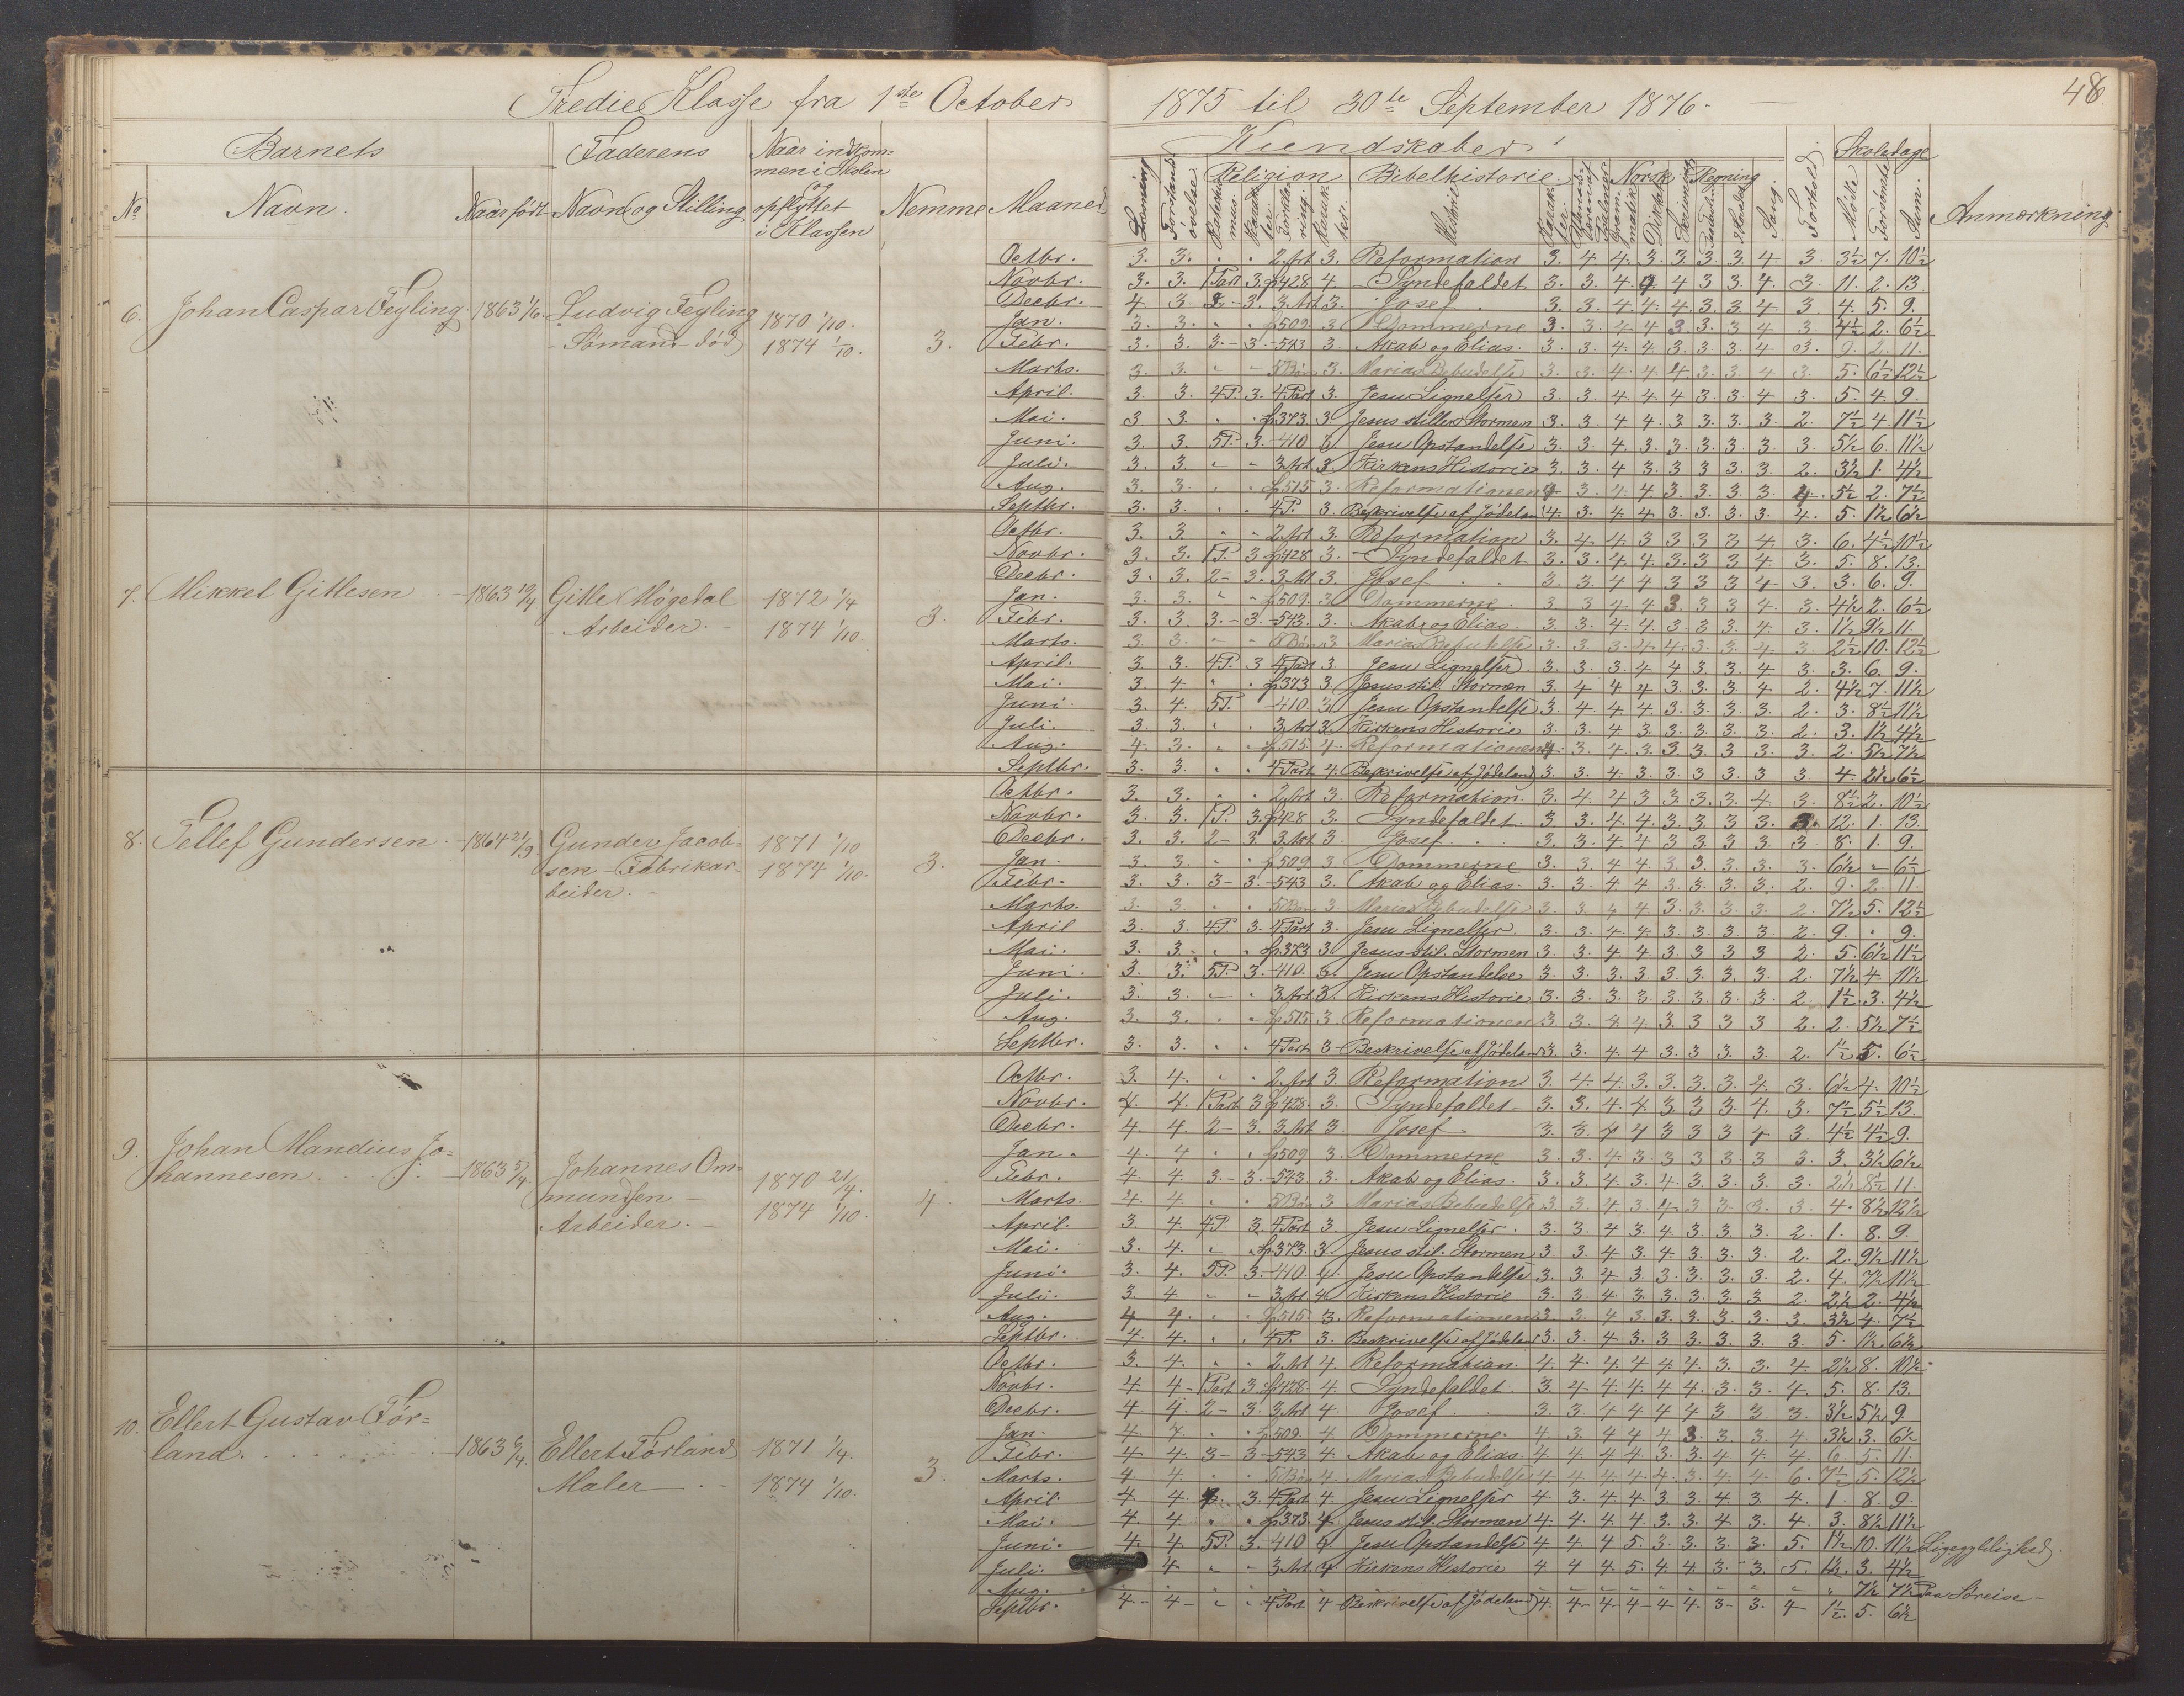 Tredie Klasse fra 1ste October 1875 til 30te September 1876.
48
Barnets
Faderens
Naar indkom-
men i Skolen
og
opflyttet
i Klassen
Kundskaber
Skoledage
No
Navn.
Naar født
Navn og Stilling
Nemme
Maaned
Religion
Bibelhistorie
Norsk
Regning
Sang.
Forhold.
Mødte
Forsømte
Sum.
Anmærkning
6. Johan Caspar Feyling. 1863 1/6. Ludvig Feyling
Sømand død
1870 1/10.
1874 1/10.
3.
Octbr. 3. 3. 2. Art 3. Reformation 3. 4. 4. 3. 3 3. 3. 4. 3. 3½ 7. 10½
Novbr. 3. 3. 1 Part 3. p428 4. Syndefaldet 3. 3. 4. 4 4 3 3. 4. 3. 11. 2. 13.
Decbr. 4. 3. 2-3. 3. Art 3. Josef 3. 3. 4. 4. 4. 3. 3. 4. 3 4. 5. 9.
Jan. 3. 3. p509. 3 Dommerne 3. 3. 4 4 3 3. 3 4 3 4½ 2. 6½
Febr. 3. 3. 3.-3. -543 3. Akab og Elias. 3. 3. 4. 4. 3. 3. 3. 4 3. 9. 2. 11.
Marts. 3. 3. 5 Bøn 3. Marias Bebudelse 3. 3. 4. 4. 4. 3. 3. 4 3. 5. 6½ 12½
April. 3. 3. 4P. 3. 4 Part 3. Jesu Lignelser 3. 3. 4. 4. 4 3. 3. 4 3. 5. 4. 9.
Mai. 3 3. p373 3 Jesus stiller Stormen 3. 3. 4. 4. 3. 3. 3. 3. 2. 7½ 4. 11½
Juni. 3 3. 5P. 3. -410 3 Jesu Opstandelse 3. 3. 4. 3. 3. 3. 3. 3. 3. 5½ 6. 11½
Juli. 3. 3. 3. Art 3. Kirkens Historie 3. 3. 4 3. 3 3. 3. 3. 2. 3½ 1. 4½
Aug. 3. 3. p515 3. Reformationen 4 3. 4. 4. 3. 3. 3. 3. 4. 5½ 2. 7½
Septbr. 3. 3. 4P. 3. Beskrivelse af Jødeland 4. 3. 4. 4. 3. 3. 3. 3. 4. 5. 1½ 6½
7. Mikkel Gitlesen 1863 19/4 Gitle Møgedal
Arbeider.
1872 1/4
1874 1/10.
3.
Octbr. 3. 3. 2. Art 3. Reformation 3. 4. 4. 3 3 3 3 4. 3. 6. 4½ 10½
Novbr. 3. 3. 1P. 3 p428 3. Syndefaldet 3. 3. 4. 4. 3. 3 3 4 3. 5. 8. 13.
Decbr. 3. 3. 2-3. 3. Art 3. Josef 3. 3. 4 4 3 3 3 4 3. 3. 6. 9.
Jan. 3. 3. p509. 3. Dommerne 3. 3 4 4 3. 3 3 4. 3. 4½ 2. 6½
Febr. 3. 3. 3.-3. -543. 3. Akab og Elias. 3. 3. 4. 4. 3. 3. 3. 4. 3. 1½ 9½ 11.
Marts. 3. 3. 5 Bøn 3 Marias Bebudelse 3. 3. 3. 4. 4. 3. 3. 4 3. 2½ 10. 12½
April. 3 3. 4P. 3 4 Part 3. Jesu Lignelser 3. 3. 3. 4 4 3 3. 4. 3. 3. 6. 9.
Mai. 3. 4 p373 3. Jesus stil. Stormen 3. 4 4 4 3. 3. 3. 4 2. 4½ 7. 11½
Juni. 3. 4. 5P. -410. 3 Jesu Opstandelse 3. 4 4. 4. 3. 3. 3. 3. 2. 3. 8½ 11½
Juli. 3. 3. 3. Art 3. Kirkens Historie 3. 3. 4 3. 3. 3. 3. 3. 2. 3. 1½ 4½
Aug. 4. 3. p515 4. Reformationen 4. 3. 4. 3. 3. 3. 3 3. 3. 2. 5½ 7½
Septbr. 3. 3. 4 Part 4. Beskrivelse af Jødeland 3. 3. 4 3. 3. 3. 3. 3 3. 4. 2½ 6½
8. Tellef Gundersen. 1864 21/3 Gunder Jacob-
sen - Fabrikar-
beider.
1871 1/10
1874 1/10.
3.
Octbr. 3. 3. 2. Art 3. Reformation. 3. 4 4 3 3. 3. 3. 4 3. 8½ 2. 10½
Novbr. 3. 3. 1P. 3. p428 3. Syndefaldet. 3. 3. 4. 4. 3. 3. 3 3. 3. 12. 1. 13.
Decbr. 3. 3. 2-3 3. Art 3 Josef 3. 3. 4 4 3 3 3 3. 3 8. 1. 9.
Jan. 3. 3. p509 3 Dommerne 3. 3 4 4 3. 3. 3. 3. 3. 6½ - 6½
Febr. 3. 3. 3-3. -543 3. Akab og Elias. 3. 3. 4 4 3. 3. 3. 3. 2. 9. 2. 11.
Marts. 3. 3. 5 Bøn 3. Marias Bebudelse 3. 3. 4 4 3. 3. 3. 3. 2. 7½ 5. 12½
April 3. 3. 4P. 3. 4 Part 3. Jesu Lignelser. 3. 3. 4. 4. 3. 3. 3. 3 2. 9. 9.
Mai. 3. 3. p373 3 Jesus stil. Stormen 3. 3. 4 4 3. 3 3 3 2. 5. 6½ 11½
Juni. 3. 3. 5P. 3. -410. 3. Jesu Opstandelse 3. 3. 3. 3. 3. 3. 3. 3. 2. 7½ 4. 11½
Juli. 3. 3. 3. Art 3. Kirkens Historie 3. 3. 3. 3. 3. 3. 3. 3. 2. 1½ 3. 4½
Aug. 3. 3. p515 3. Reformationen 3. 3. 4 4. 3. 3 3 3 2. 2. 5½ 7½
Septbr. 3. 3. 4 Part 3 Beskrivelse af Jødeland 3. 3. 4 4 3. 3 3. 3. 2. 1½ 5. 6½
9. Johan Mandius Jo-
hannesen 1863 5/4 Johannes Om-
mundsen
Arbeider.
1870 21/4.
1874 1/10.
4.
Octbr. 3. 4. 2. Art 3. Reformation 3. 4. 4. 3. 3. 3. 3. 4. 3. 6½ 4. 10½
Novbr. 4. 4. 1 Part 3 p428. 3. Syndefaldet 3. 3. 4. 4 3. 3 3. 4. 3. 7½ 5½ 13.
Decbr. 4 4. 2-3. 3. Art 3. Josef 3. 3. 4 4 3 3 3 4 3 4½ 4½ 9.
Jan. 4. 4 p509 3. Dommerne 3. 3. 4. 3. 3. 3. 3 3 3. 3. 3½ 6½
Febr. 4 4. 3.-3. -543 3. Akab og Elias. 3. 3. 4 3. 4. 3. 3. 3. 3. 2½ 8½ 11.
Marts. 4 4 5 Bøn 3 Marias Bebudelse 3 3 4 3 4. 3 3 3. 3. 4. 8½ 12½
April. 3. 4. 4P. 3. 4 Part 3. Jesu Lignelser. 3. 3. 4 3. 4 3. 3. 3. 2 1. 8. 9.
Mai. 3. 4. p373. 3. Jesus stil. Stormen 3. 3 4 3. 4. 3. 3. 3. 2. 2. 9½ 11½
Juni. 3. 4. 5P. 3. -410 4. Jesu Opstandelse 3. 3. 4. 3. 3. 3. 3. 3. 2. 4. 7½ 11½
Juli. 3. 4. 3. Art 4. Kirkens Historie 3. 3. 4. 3. 3. 3. 3. 3 2. 2½ 2. 4½
Aug. 4 4. p515. 3. Reformationen 3. 3. 4 3. 3. 3. 3. 3. 3. 3½ 4. 7½
Septbr. 4. 4. 4P. 3. Beskrivelse af Jødeland 3. 3. 4 3. 3. 3. 3. 3 3. 5. 1½ 6½
10. Ellert Gustav Før-
land. 1863 6/4. Ellert Førland
Maler
1871 1/4.
1874 1/10.
3.
Octbr. 3. 4. 2. Art 4. Reformation. 4. 4. 4. 4 4. 4. 3. 3. 4. 2½ 8. 10½
Novbr. 4. 4 - 1 Part 3. p428. 4. Syndefaldet. 3. 4 4. 4. 4 4. 3. 3. 4. 5. 8. 13.
Decbr. 4. 4. 2-3. 3. Art 4. Josef 3. 3 4 4 4 4 3 3. 3. 3½ 5½ 9
Jan. 4 4. p509. 4 Dommerne. 4. 3 4 4 4 3. 3. 3. 4. 3½ 3. 6½
Febr. 4 4. 3-3 -543 4. Akab og Elias. 4 4 4 4 3. 3. 4 4. 4. 6. 5. 11.
Marts. 4 4. 5 Bøn 4. Marias Bebudelse 4 4 4. 4. 4. 3. 4. 4 6. 7½ 5. 12½
April. 4. 4. 3. 4 Part 4. Jesu Lignelser 4. 3. 4 4 3. 3. 4 3. 4. 1. 8. 9.
Mai. 4. 4. p373. 4 Jesus stil. Stormen 4 4. 4. 4 3. 3. 4 3. 4. 3. 8½ 11½
Juni. 4 4. 5P. 3. -410 4. Jesu Opstandelse 4 4. 4 5. 3. 3. 3. 3. 5. 1½ 10. 11½ Ligegyldighed.
Juli. 4 3. Art 4. Kirkens Historie 4 4 4. 5. 4. 4 3. 3. 5. 1½ 3. 4½
Aug. 7½ 7½ Paa Søreise
Septbr. 4 - 4 - 4 Part 4 Beskrivelse af Jødeland 4. 4 4 4 4 4. 3 3. 4 1½ 5. 6½